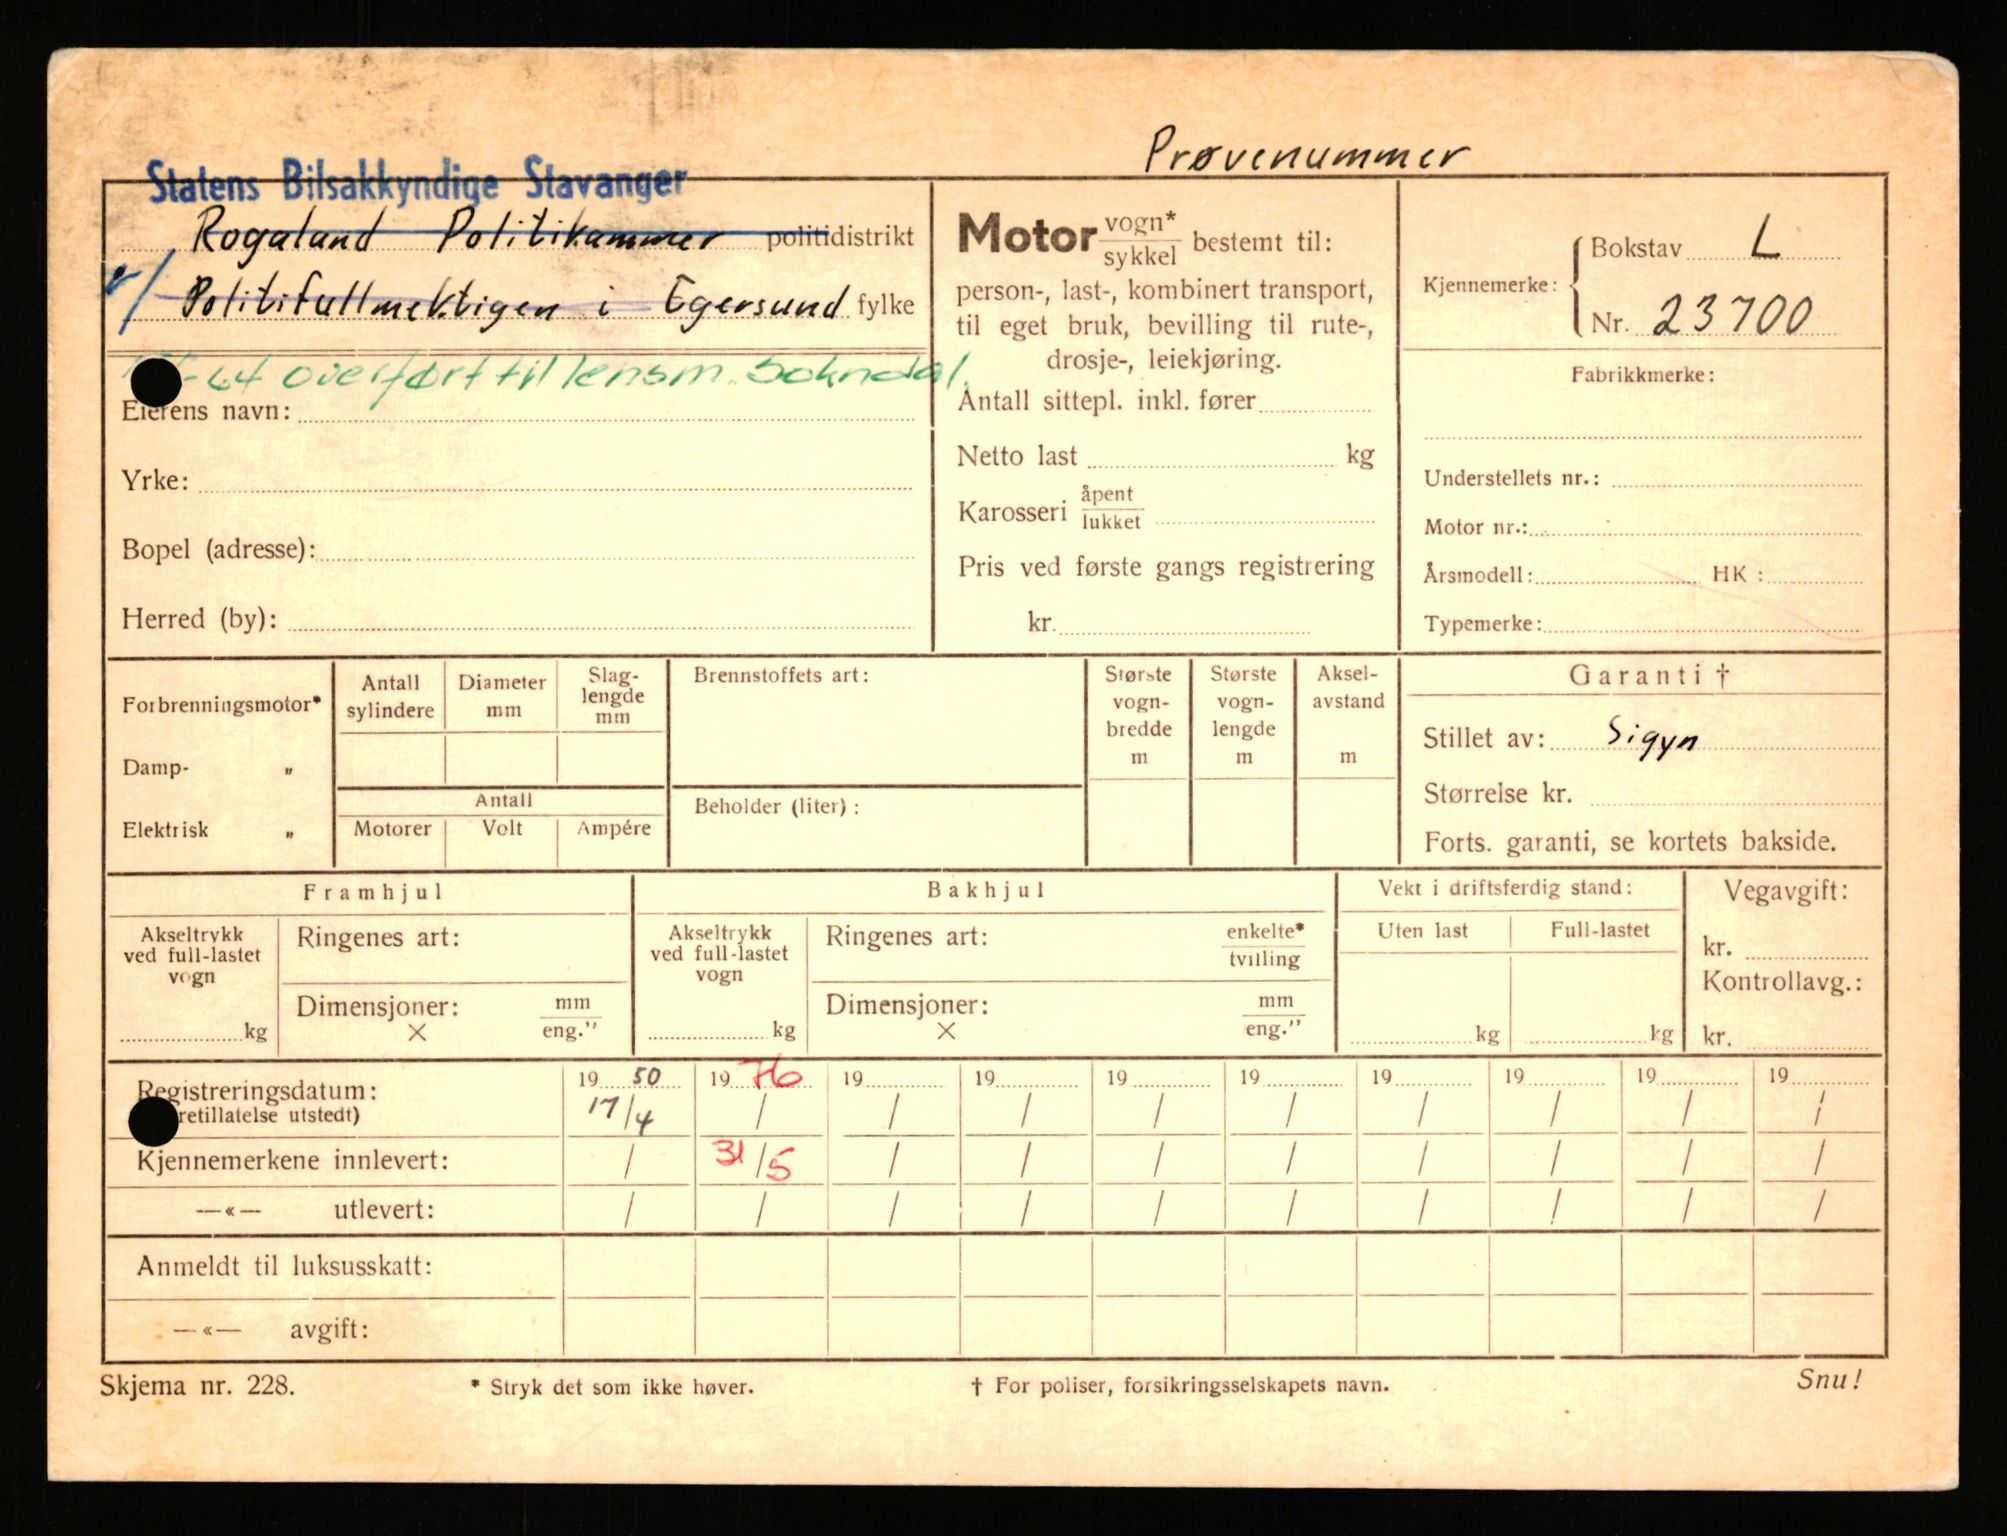 Prøvenummer
Statens Bilsakkyndige Stavanger
Rogaland Politikammer politidistrikt
v/ Politifullmektigen i Egersund fylke
-64 overført til lensm. Sokndal.
Eierens navn:
Yrke:
Bopel (adresse):
Herred (by):
Motor vogn* / sykkel bestemt til:
person-, last-, kombinert transport,
til eget bruk, bevilling til rute-,
drosje-, leiekjøring.
Antall sittepl. inkl. fører
Netto last kg
Karosseri åpent / lukket
Pris ved første gangs registrering
kr.
Kjennemerke: Bokstav L
Nr. 23700
Fabrikkmerke:
Understellets nr.:
Motor nr.:
Årsmodell: HK:
Typemerke:
Forbrenningsmotor*
Damp- „
Elektrisk „
Antall sylindere
Diameter mm
Slag-lengde mm
Antall
Motorer Volt Ampére
Brennstoffets art:
Beholder (liter):
Største vogn-bredde m
Største vogn-lengde m
Aksel-avstand m
Garanti †
Stillet av: Sigyn
Størrelse kr.
Forts. garanti, se kortets bakside.
Framhjul
Akseltrykk
ved full-lastet
vogn
kg
Ringenes art:
Dimensjoner: mm / eng."
×
Bakhjul
Akseltrykk
ved full-lastet
vogn
kg
Ringenes art: enkelte* / tvilling
Dimensjoner: mm / eng."
×
Vekt i driftsferdig stand:
Uten last Full-lastet
kg kg
Vegavgift:
kr.
Kontrollavg.:
kr.
Registreringsdatum: 19 50 19 76 19 19 19 19 19 19 19 19
retillatelse utstedt) 17/4 / / / / / / / / /
Kjennemerkene innlevert: / 31/5 / / / / / / / /
—«— utlevert: / / / / / / / / / /
Anmeldt til luksusskatt:
—«— avgift:
Skjema nr. 228.
* Stryk det som ikke høver.
† For poliser, forsikringsselskapets navn.
Snu!